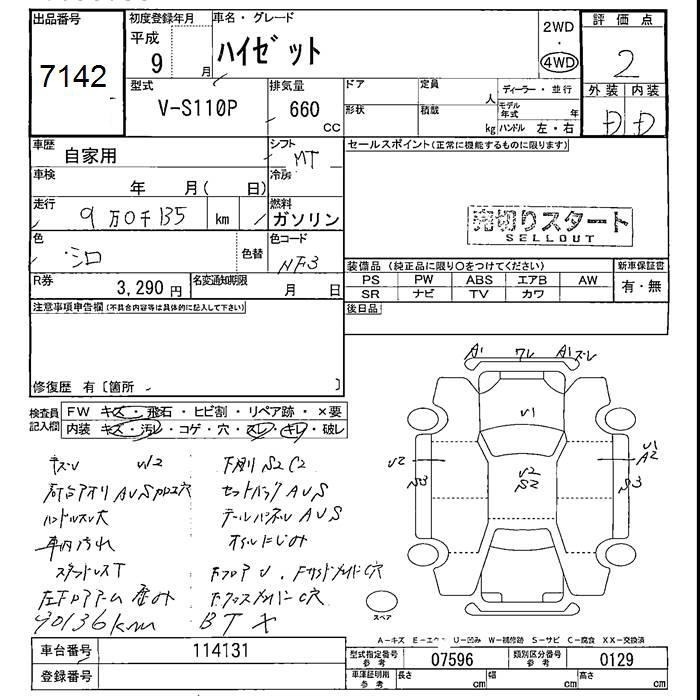 出品番号
7142
初度登録年月
平成
9 月
車名・グレード
ハイゼット
2WD
・
4WD
評価点
2
外装 内装
D D
型式
V-S110P
排気量
660
CC
ドア 定員 人
形状 積載 kg
ディーラー・並行
モデル年式 年
ハンドル 左・右
車歴 自家用
シフト MT
車検 年 月( 日)
冷房
走行 9万0千135 km
燃料 ガソリン
色 シロ
色替
色コード NF3
R券 3,290円
名変通知期限 月 日
セールスポイント(正常に機能するものに限ります)
売切りスタート
SELLOUT
装備品(純正品に限り○をつけてください)
PS PW ABS エアB AW
SR ナビ TV カワ
新車保証書
有・無
後日品
注意事項申告欄(不具合内容等は具体的に記入して下さい)
修復歴 有〔箇所 〕
検査員記入欄
FW キズ・飛石・ヒビ割・リペア跡・×要
内装 キズ・汚レ・コゲ・穴・スレ・キレ・破レ
下廻り S2 C2
荷台アオリ AUS
セットバック AUS
ハンドルスレ大
テールパネル AUS
車内汚れ
オイルにじみ
スタッドレスT
フロアU、Fサイドメンバー C穴
クロスメンバー C穴
90136km
BT X
A1 ワレ A1 ズレ
U1
U2
S2
U2
S3
U1
A2
S3
スペア
A-キズ E-エクボ U-凹み W-補修跡 S-サビ C-腐食 XX-交換済
車台番号 114131
登録番号
型式指定番号 参考 07596
類別区分番号 参考 0129
車庫証明用 参考 長さ cm 幅 cm 高さ cm